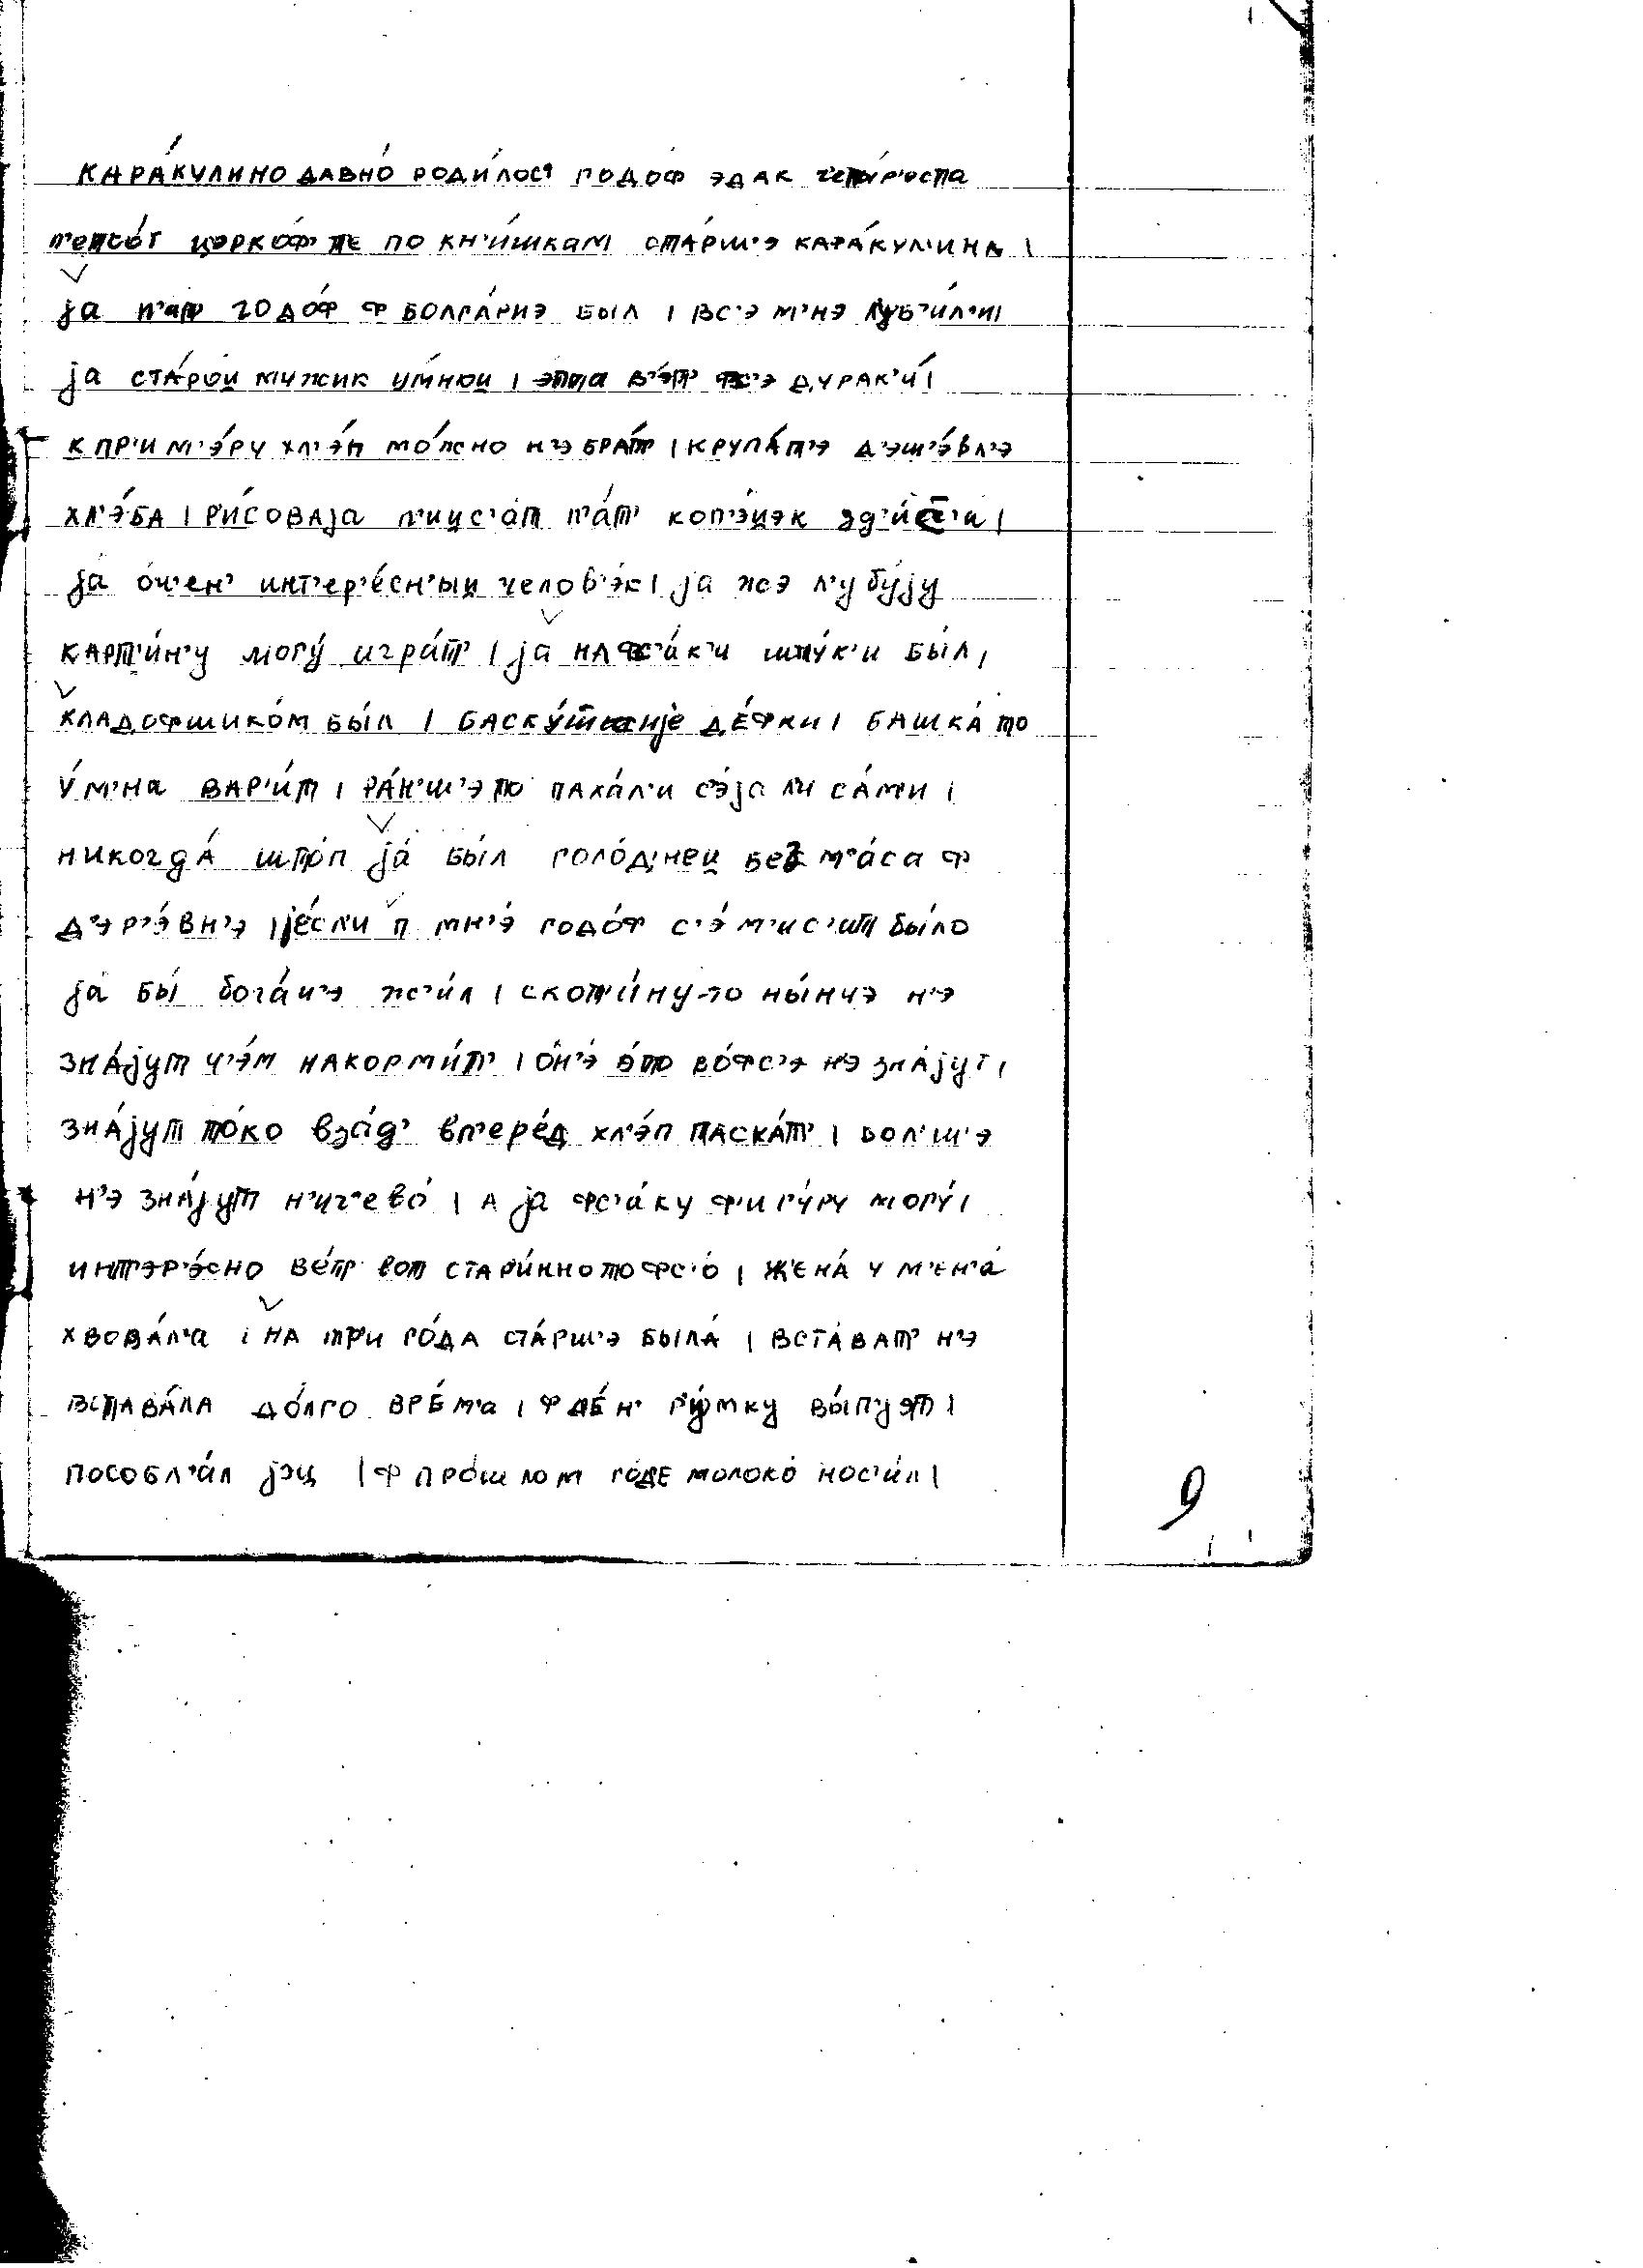 КАРА́КУЛИНО ДАВНО́ РОДИ́ЛОС'а ГОДО́Ф ЭДАК ч'еты́р'оста
п'ет'со́т цэрко́ф' те ПО КН'И́ШКАМ СТА́РШ'Э КАРА́КУЛ'ИНА |
jа п'ат' ГОДО́Ф Ф БОЛГА́РИЭ БЫЛ | ВС'Э М'НЭ Л'УБ'И́Л'И |
jа СТА́РОЙ МУЖИК У́МНОЙ | э́та в'э́т' фс'э ДУРАК'И́ |
К ПР'И М'Э́РУ ХЛ'Э́П МО́ЖНО Н'Э БРА́Т' | КРУПА́ Т'Э Д'ЭШ'Э́ВЛ'Э
ХЛ'Э́БА | РИ́СОВАjа п'ицс'а́т п'а́т' коп'э́йэк |
jа о́ч'ен' инт'ер'е́сн'ый человѐ'к | jа жэ л'убу́jу
КАРТ'И́Н'У МОГУ́ ИГРА́Т' | jа́ НА ФС'А́К'И ШТУ́К'И БЫ́Л |
ХЛАДОФШИКО́М БЫ́Л | ДЕ́ФКИ | БАШКА́ ТО
У́М'НА ВАР'И́Т | РА́Н'Ш'Э ТО ПАХА́Л'И С'Э́jА ЛИ СА́МИ |
НИКОГДА́ ШТО́П jа́ БЫ́Л ГОЛО́Д'НЕЙ БЕЗ М'А́СА Ф
Д'ЭР'Э́ВН'Э | jе́СЛИ П МН'Э́ ГОДО́Ф С'Э́М'ИС'ИТ БЫ́ЛО
jа́ БЫ́ БОГА́Ч'Э Ж'И́Л | СКОТ'И́НУ-ТО НЫ́НЧЭ Н'Э
ЗНА́jУТ Ч'Э́М НАКОРМИ́Т' | ОН'Э́ Э́ТО ВО́ФС'Э Н'Э ЗНА́jУТ |
ЗНА́jУТ ТО́КО ВЗА́Д' ВП'ЕРЕ́Д ХЛ'Э́П ТАСКА́Т' | БОЛ'Ш'Э
Н'Э ЗНА́jУТ Н'ИЧ'ЕВО́ | А jа ФС'А́КУ Ф'ИГУ́РУ МОГУ́ |
ИНТ'ЭР'Э́СНО ВЕ́Т' ВОТ СТАРИ́ННО ТО ФС'О́ | Ж'ЕНА́ У М'ЕН'А́
ХВОВА́Л'А | НА ТР'И ГО́ДА СТА́РШ'Э БЫЛА́ | ВСТАВА́Т' Н'Э
ВСТАВА́ЛА ДО́ЛГО ВРЕ́М'А | Ф ДЕ́Н' Р'У́МКУ ВЫ́ПjЭТ |
ПОСОБЛ'А́Л jЭЙ | Ф ПРО́ШЛОМ ГО́ДЕ МОЛОКО́ НОС'И́Л |
9